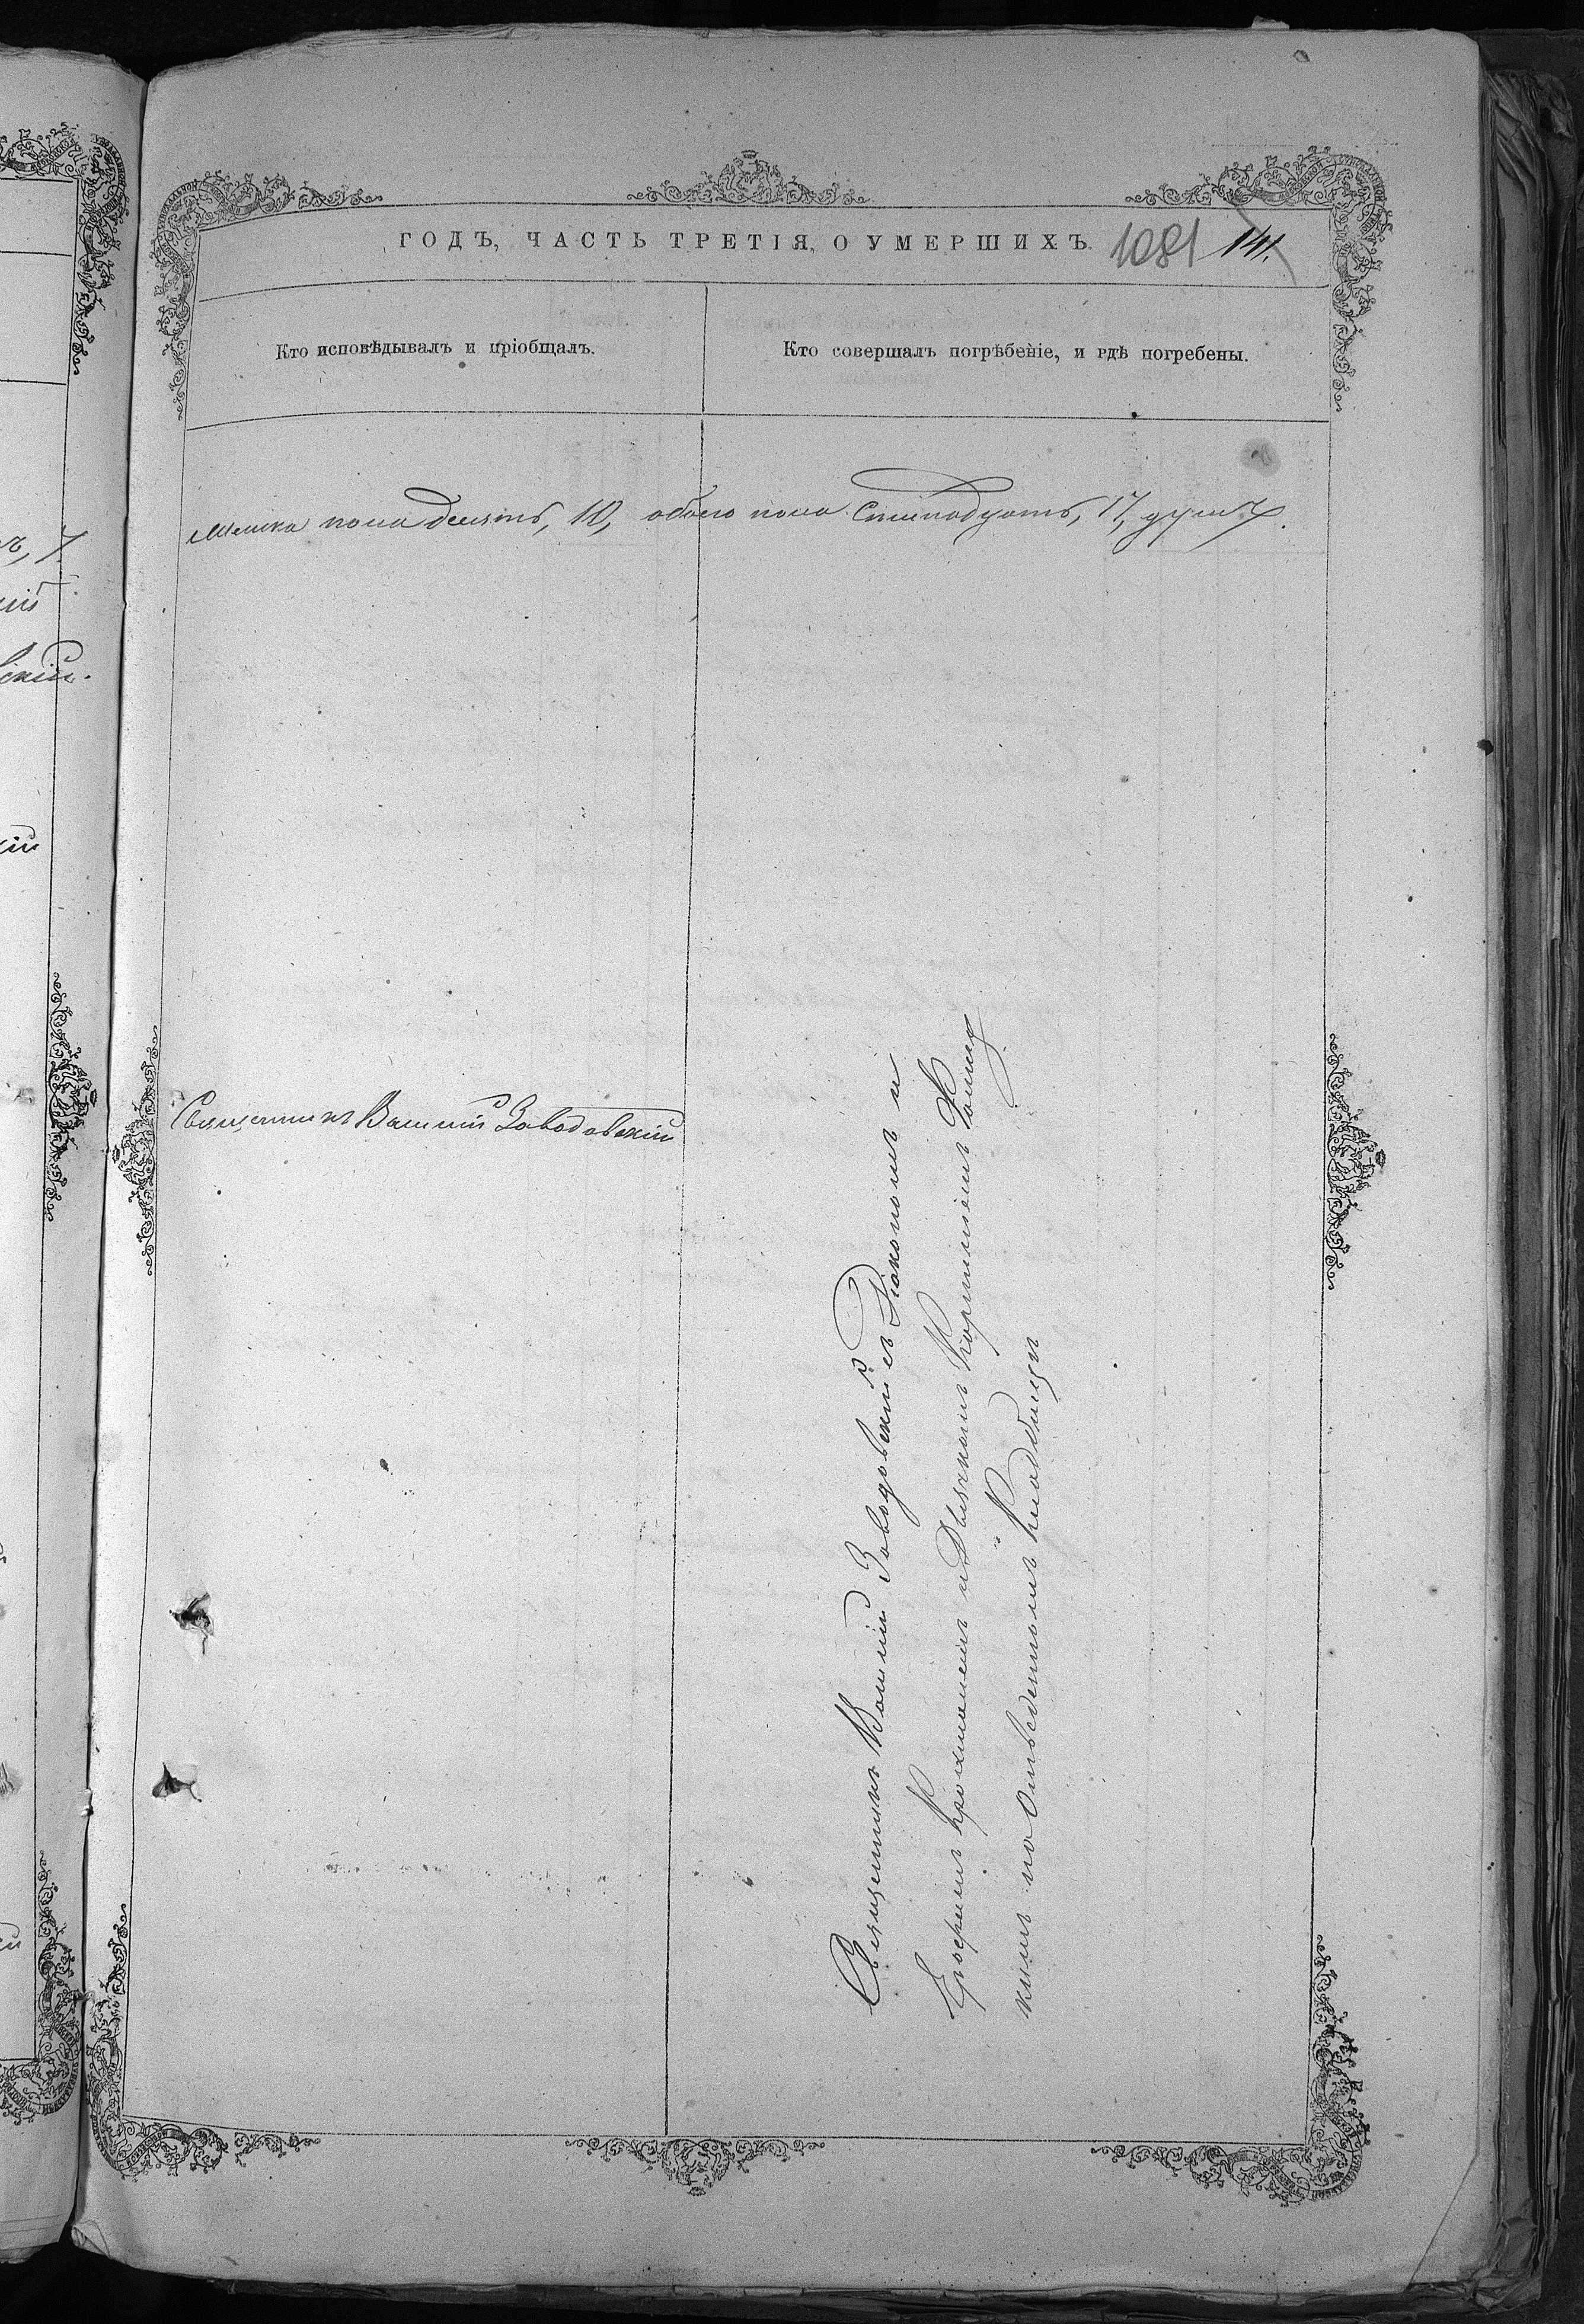 ГОДЪ, ЧАСТЬ ТРЕТІЯ, О УМЕРШИХЪ.
1081 141.
Кто исповѣдывалъ и пріобщалъ.
Кто совершалъ погрѣбеніе, и гдѣ погребены.
пола десять, 10, обоего пола семнадцать, 17, душъ.
Священникъ Василій Заводовскій
Священникъ Василій Заводовскій съ Діакономъ и
и Дьячкомъ Корниліемъ
на отведенномъ кладбищѣ